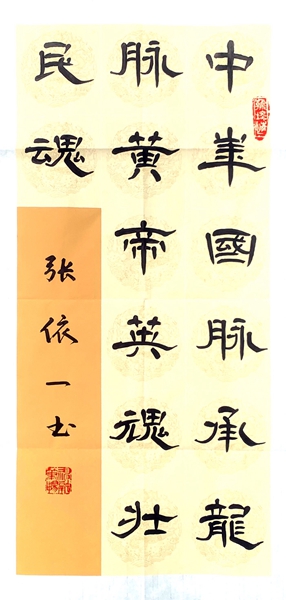 中华國脉承龍
脉黄帝英魂壮
民魂
张依一书